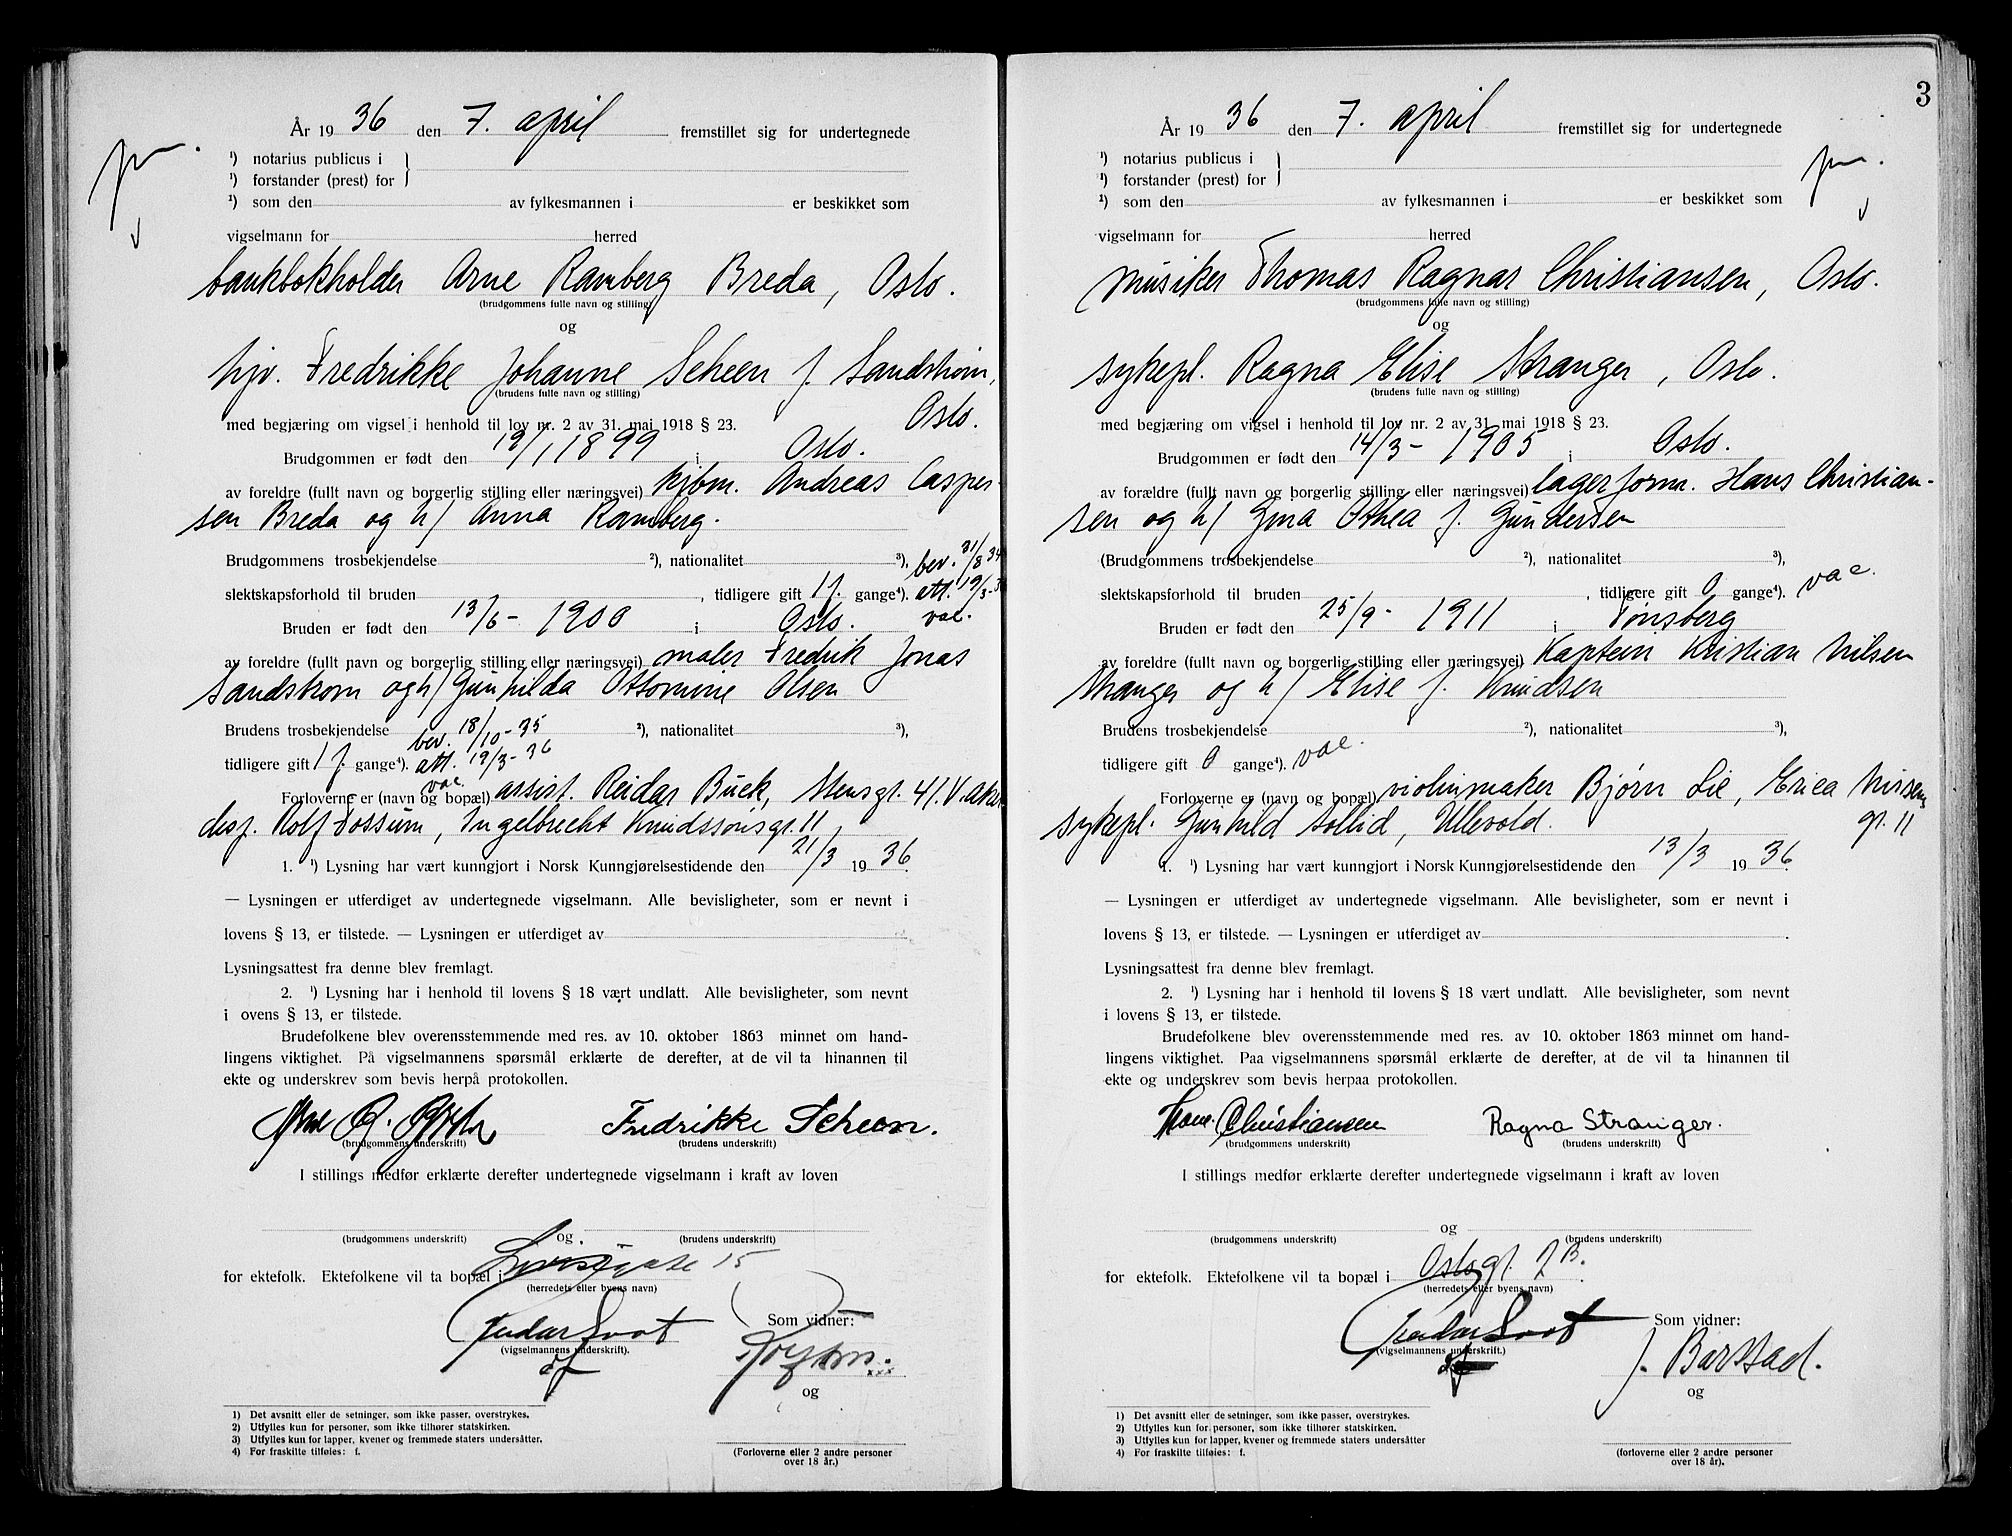 År 1936 den 7. april fremstillet sig for undertegnede
¹) notarius publicus i
¹) forstander (prest) for
²) som den av fylkesmannen i er beskikket som
vigselmann for herred
bankbokholder Arne Ramberg Breda, Oslo.
(brudgommens fulle navn og stilling)
og
hjv. Fredrikke Johanne Scheen f. Sandstrøm,
(brudens fulle navn og stilling)
Oslo.
med begjæring om vigsel i henhold til lov nr. 2 av 31. mai 1918 § 23.
Brudgommen er født den 19/1 1899 i Oslo.
av foreldre (fullt navn og borgerlig stilling eller næringsvei) kjbm. Andreas Casper-
sen Breda og h/ Anna Ramberg.
Brudgommens trosbekjendelse ²), nationalitet ³), bev. 31/8 34
slektskapsforhold til bruden , tidligere gift 1 f. gange⁴). att. 19/3-3
Bruden er født den 13/6 - 1900 i Oslo. vac.
av foreldre (fullt navn og borgerlig stilling eller næringsvei) maler Fredrik Jonas
Sandstrøm og h/ Gunhilda Ottomine Olsen
Brudens trosbekjendelse bev. 18/10-35 ²), nationalitet ³),
tidligere gift 1 f. gange⁴). att. 19/3-36
vac.
Forloverne er (navn og bopæl) assist. Reidar Buck, Stensgt. 41. V. aker
disp. Rolf Fossum, Ingelbrecht Knudssønsgt. 11
1. ¹) Lysning har vært kunngjort i Norsk Kunngjørelsestidende den 21/3 1936.
— Lysningen er utferdiget av undertegnede vigselmann. Alle bevisligheter, som er nevnt i
lovens § 13, er tilstede. — Lysningen er utferdiget av
Lysningsattest fra denne blev fremlagt.
2. ¹) Lysning har i henhold til lovens § 18 vært undlatt. Alle bevisligheter, som nevnt
i ovens § 13, er tilstede.
Brudefolkene blev overensstemmende med res. av 10. oktober 1863 minnet om hand-
lingens viktighet. På vigselmannens spørsmål erklærte de derefter, at de vil ta hinannen til
ekte og underskrev som bevis herpå protokollen.
Fredrikke Scheen.
(brudgommens underskrift) (brudens underskrift)
I stillings medfør erklærte derefter undertegnede vigselmann i kraft av loven
og
(brudgommens underskrift) (brudens underskrift)
for ektefolk. Ektefolkene vil ta bopæl i 15
(herredets eller byens navn)
Som vidner:
(vigselmannens underskrift).
og
1) Det avsnitt eller de setninger, som ikke passer, overstrykes.
2) Utfylles kun for personer, som ikke tilhører statskirken.
3) Utfylles kun for lapper, kvener og fremmede staters undersåtter.
4) For fraskilte tilføies: f.
(Forloverne eller 2 andre personer
over 18 år.)
3
År 1936 den 7. april fremstillet sig for undertegnede
¹) notarius publicus i
¹) forstander (prest) for
²) som den av fylkesmannen i er beskikket som
vigselmann for herred
musiker Thomas Ragnar Christiansen, Oslo.
(brudgommens fulle navn og stilling)
og
sykepl. Ragna Elise Stranger, Oslo.
(brudens fulle navn og stilling)
med begjæring om vigsel i henhold til lov nr. 2 av 31 mai 1918 § 23.
Brudgommen er født den 14/3 - 1905 i Oslo.
av forældre (fullt navn og borgerlig stilling eller næringsvei) lagerform. Hans Christian-
sen og h/ Gina Othea f. Gundersen
(Brudgommens trosbekjendelse ²), nationalitet ³),
slektskapsforhold til bruden , tidligere gift 0 gange⁴). vac.
Bruden er født den 25/9 - 1911 i Tønsberg
av foreldre (fullt navn og borgerlig stilling eller næringsvei) Kaptein Kristian Nilsen
Stranger og h/ Elise f. Knudsen
Brudens trosbekjendelse ²), nationalitet ³),
tidligere gift 0 gange⁴). vac.
Forloverne er (navn og bopæl) violinmaker Bjørn Lie, Erica Nissens
sykepl. Gunhild Sollid, Ullevold. gt. 11
1. ¹) Lysning har vært kunngjort i Norsk Kunngjørelsestidende den 13/3 1936.
— Lysningen er utferdiget av undertegnede vigselmann. Alle bevisligheter, som er nevnt i
lovens § 13, er tilstede. — Lysningen er utferdiget av .
Lysningsattest fra denne blev fremlagt.
2. ¹) Lysning har i henhold til lovens § 18 vært undlatt. Alle bevisligheter, som nevnt
i lovens § 13, er tilstede.
Brudefolkene blev overensstemmende med res. av 10. oktober 1863 minnet om hand-
lingens viktighet. Paa vigselmannens spørsmål erklærte de derefter, at de vil ta hinannen til
ekte og underskrev som bevis herpaa protokollen.
Thom. Christiansen Ragna Stranger.
(brudgommens underskrift) (brudens underskrift)
I stillings medfør erklærte derefter undertegnede vigselmann i kraft av loven
og
(brudgommens underskrift) (brudens underskrift)
for ektefolk. Ektefolkene vil ta bopæl i Oslogt. 2 B.
(herredets eller byens navn)
Som vidner:
(vigselmannens underskrift.)
J. Barstad.
og
1) Det avsnitt eller de setninger, som ikke passer, overstrykes.
2) Utfylles kun for personer, som ikke tilhører statskirken.
3) Utfylles kun for lapper, kvener og fremmede staters undersåtter
4) For fraskilte tilføies: f.
(forloverne eller 2 andre personer
over 18 år).